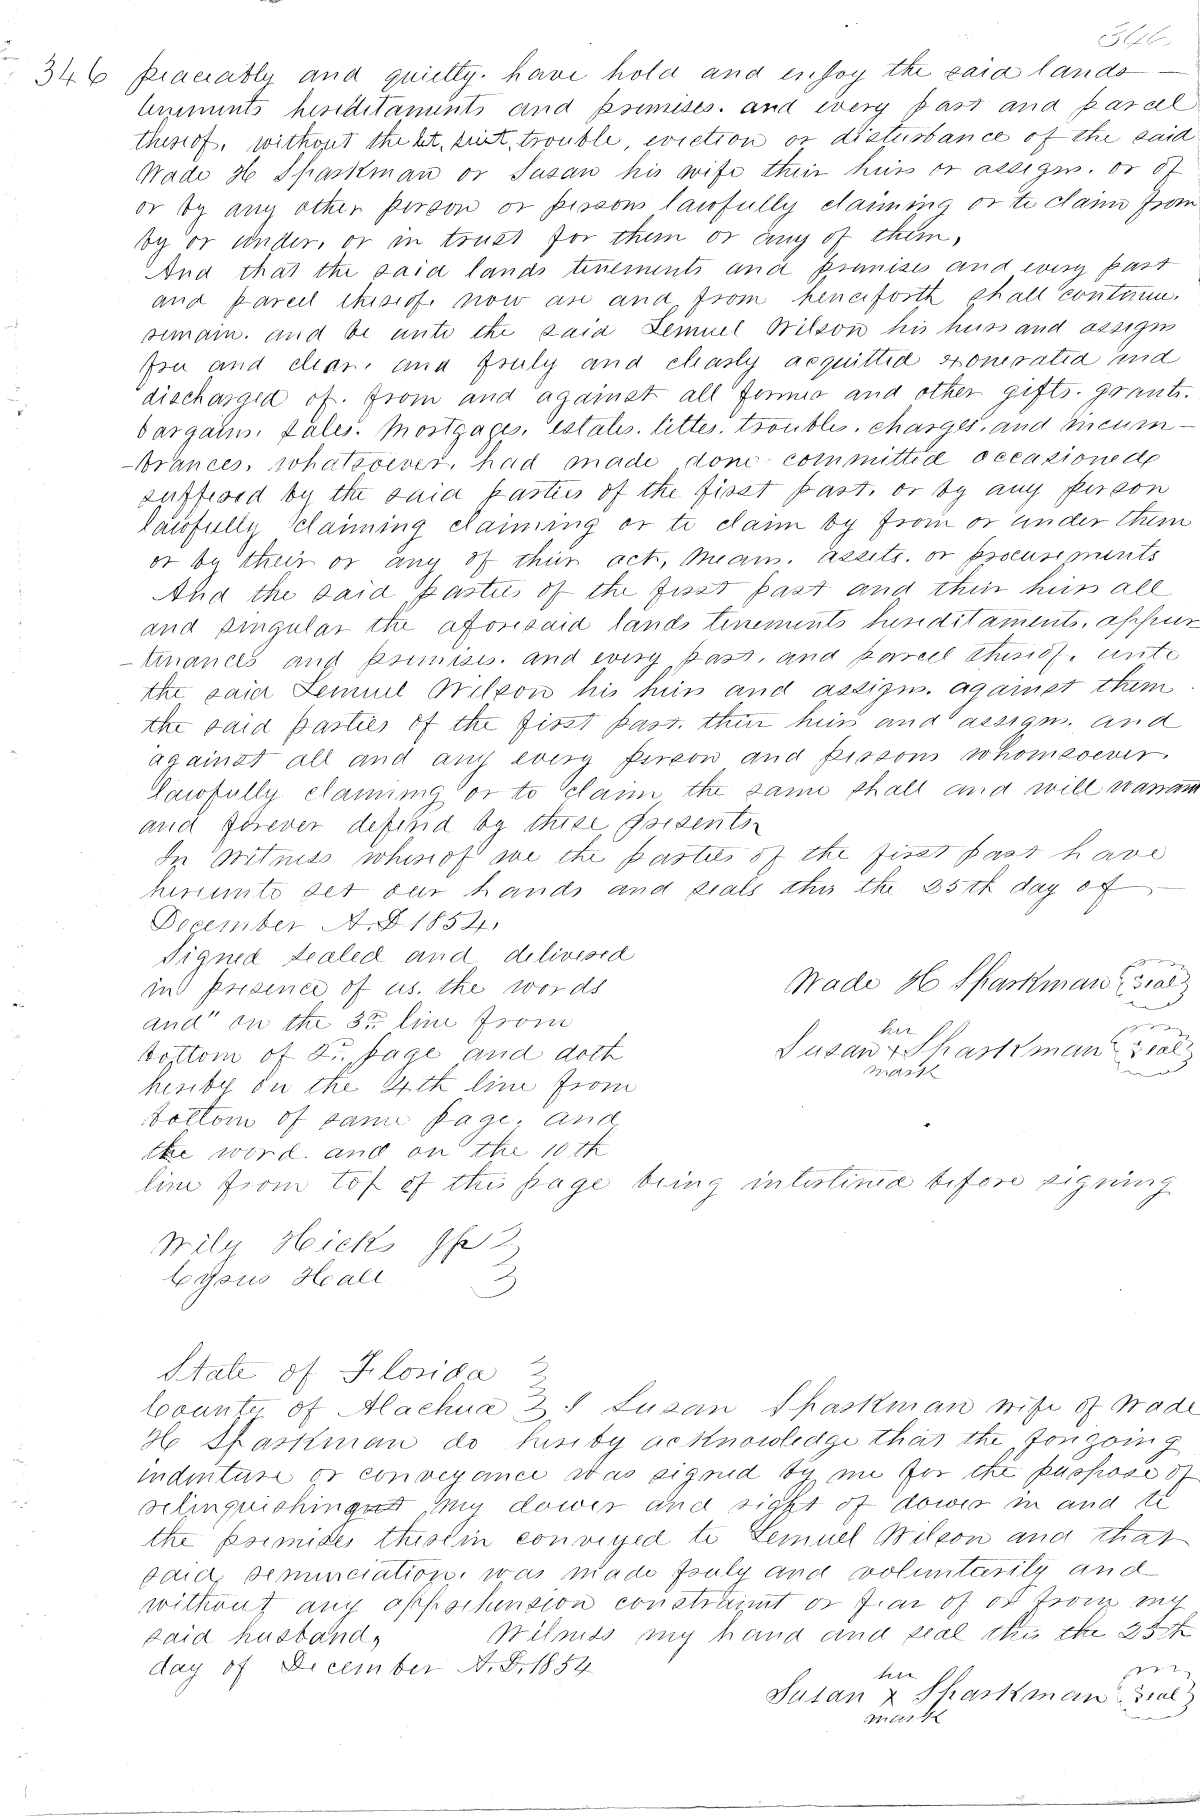 346
346 peaceably and quietly. have hold and enjoy the said lands —
tenements hereditaments and premises. and every part and parcel
thereof. without the let, suit, trouble, eviction or disturbance of the said
Wade H Sparkman or Susan his wife their heirs or assigns. or of
or by any other person or persons lawfully claiming or to claim from
by or under, or in trust for them or any of them,
And that the said lands tenements and premises and every part
and parcel thereof. now are and from henceforth shall continue.
remain. and be unto the said Lemuel Wilson his heirs and assigns
free and clear. and freely and clearly acquitted exonerated and
discharged of. from and against all former and other gifts. grants.
bargains. sales. Mortgages. estates. titles. troubles. charges. and incum-
-brances. whatsoever. had made done committed occasioned
suffered by the said parties of the first part. or by any person
lawfully claiming claiming or to claim by from or under them
or by their or any of their act, means. assets. or procurements
And the said parties of the first part and their heirs all
and singular the aforesaid lands tenements hereditaments. appur
-tenances and premises. and every part. and parcel thereof. unto
the said Lemuel Wilson his heirs and assigns. against them
the said parties of the first part. their heirs and assigns. and
against all and any every person and persons whomsoever.
lawfully claiming or to claim the same shall and will warrant
and forever defend by these presents
In Witness whereof we the parties of the first part have
hereunto set our hands and seals this the 25th day of —
December A.D 1854.
Signed sealed and delivered
in presence of us. the words
and" on the 3rd line from
bottom of 2nd page and doth
hereby on the 4th line from
bottom of same page. and
the word. and on the 10th
line from top of this page being interlined before signing
Wade H Sparkman (Seal)
her
Susan + Sparkman (Seal)
mark
Wily Hicks JP
Cyrus Hall
State of Florida
County of Alachua I Susan Sparkman wife of Wade
H Sparkman do hereby acknowledge that the forgoing
indenture or conveyance was signed by me for the purpose of
relinquishing my dower and right of dower in and to
the premises therein conveyed to Lemuel Wilson and that
said renunciation. was made freely and voluntarily and
without any apprehension constraint or fear of or from my
said husband, Witness my hand and seal this the 25th
day of December A.D. 1854
her
Susan x Sparkman (Seal)
mark